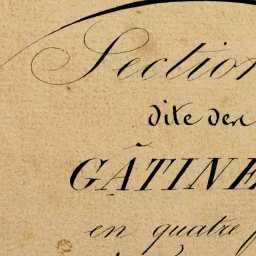 Section
dite des
GÂTINE
en quatre f